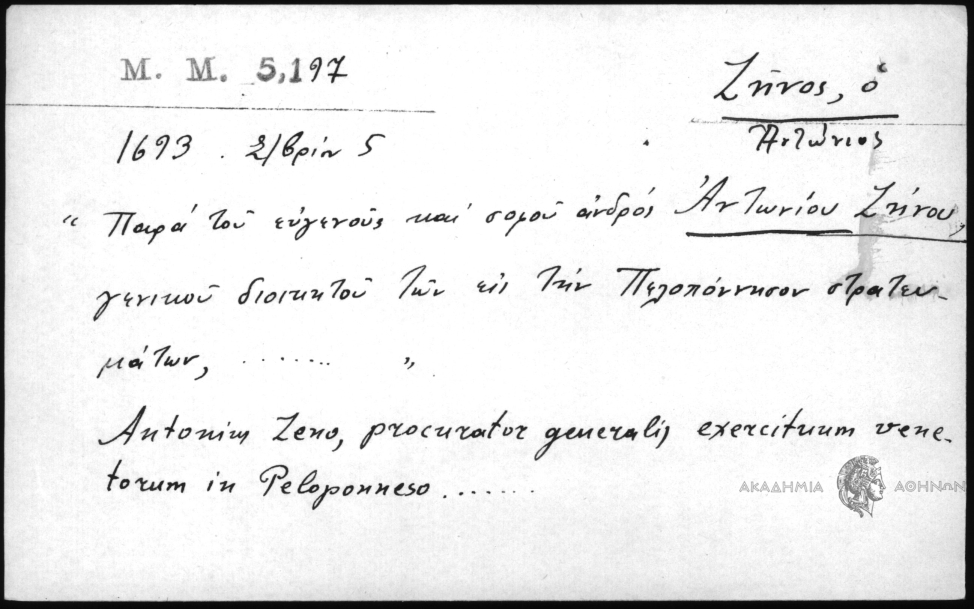 M. M. 5,197
Ζῆνος, ὁ
Ἀντώνιος
1693 . Σ/βρίου 5
“ Παρά τοῦ εὐγενοῦς καί σοφοῦ ἀνδρός Ἀντωνίου Ζήνου,
γενικοῦ διοικητοῦ τῶν εἰς τήν Πελοπόννησον στρατευ-
μάτων, ........ ”
Antonius Zeno, procurator generalis exercituum vene-
torum in Peloponneso .......
ΑΚΑΔΗΜΙΑ ΑΘΗΝΩΝ